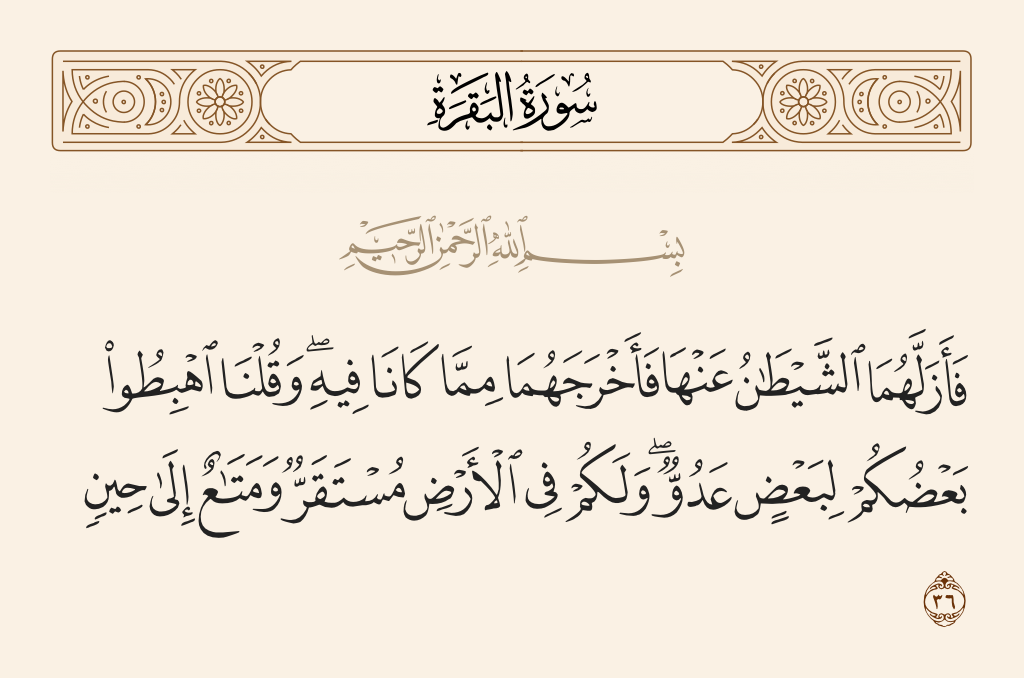 سُورَةُ البَقَرَةِ
بِسْمِ ٱللَّهِ ٱلرَّحْمَٰنِ ٱلرَّحِيمِ
فَأَزَلَّهُمَا ٱلشَّيْطَٰنُ عَنْهَا فَأَخْرَجَهُمَا مِمَّا كَانَا فِيهِۖ وَقُلْنَا ٱهْبِطُوا۟
بَعْضُكُمْ لِبَعْضٍ عَدُوٌّۖ وَلَكُمْ فِى ٱلْأَرْضِ مُسْتَقَرٌّ وَمَتَٰعٌ إِلَىٰ حِينٍ
٣٦